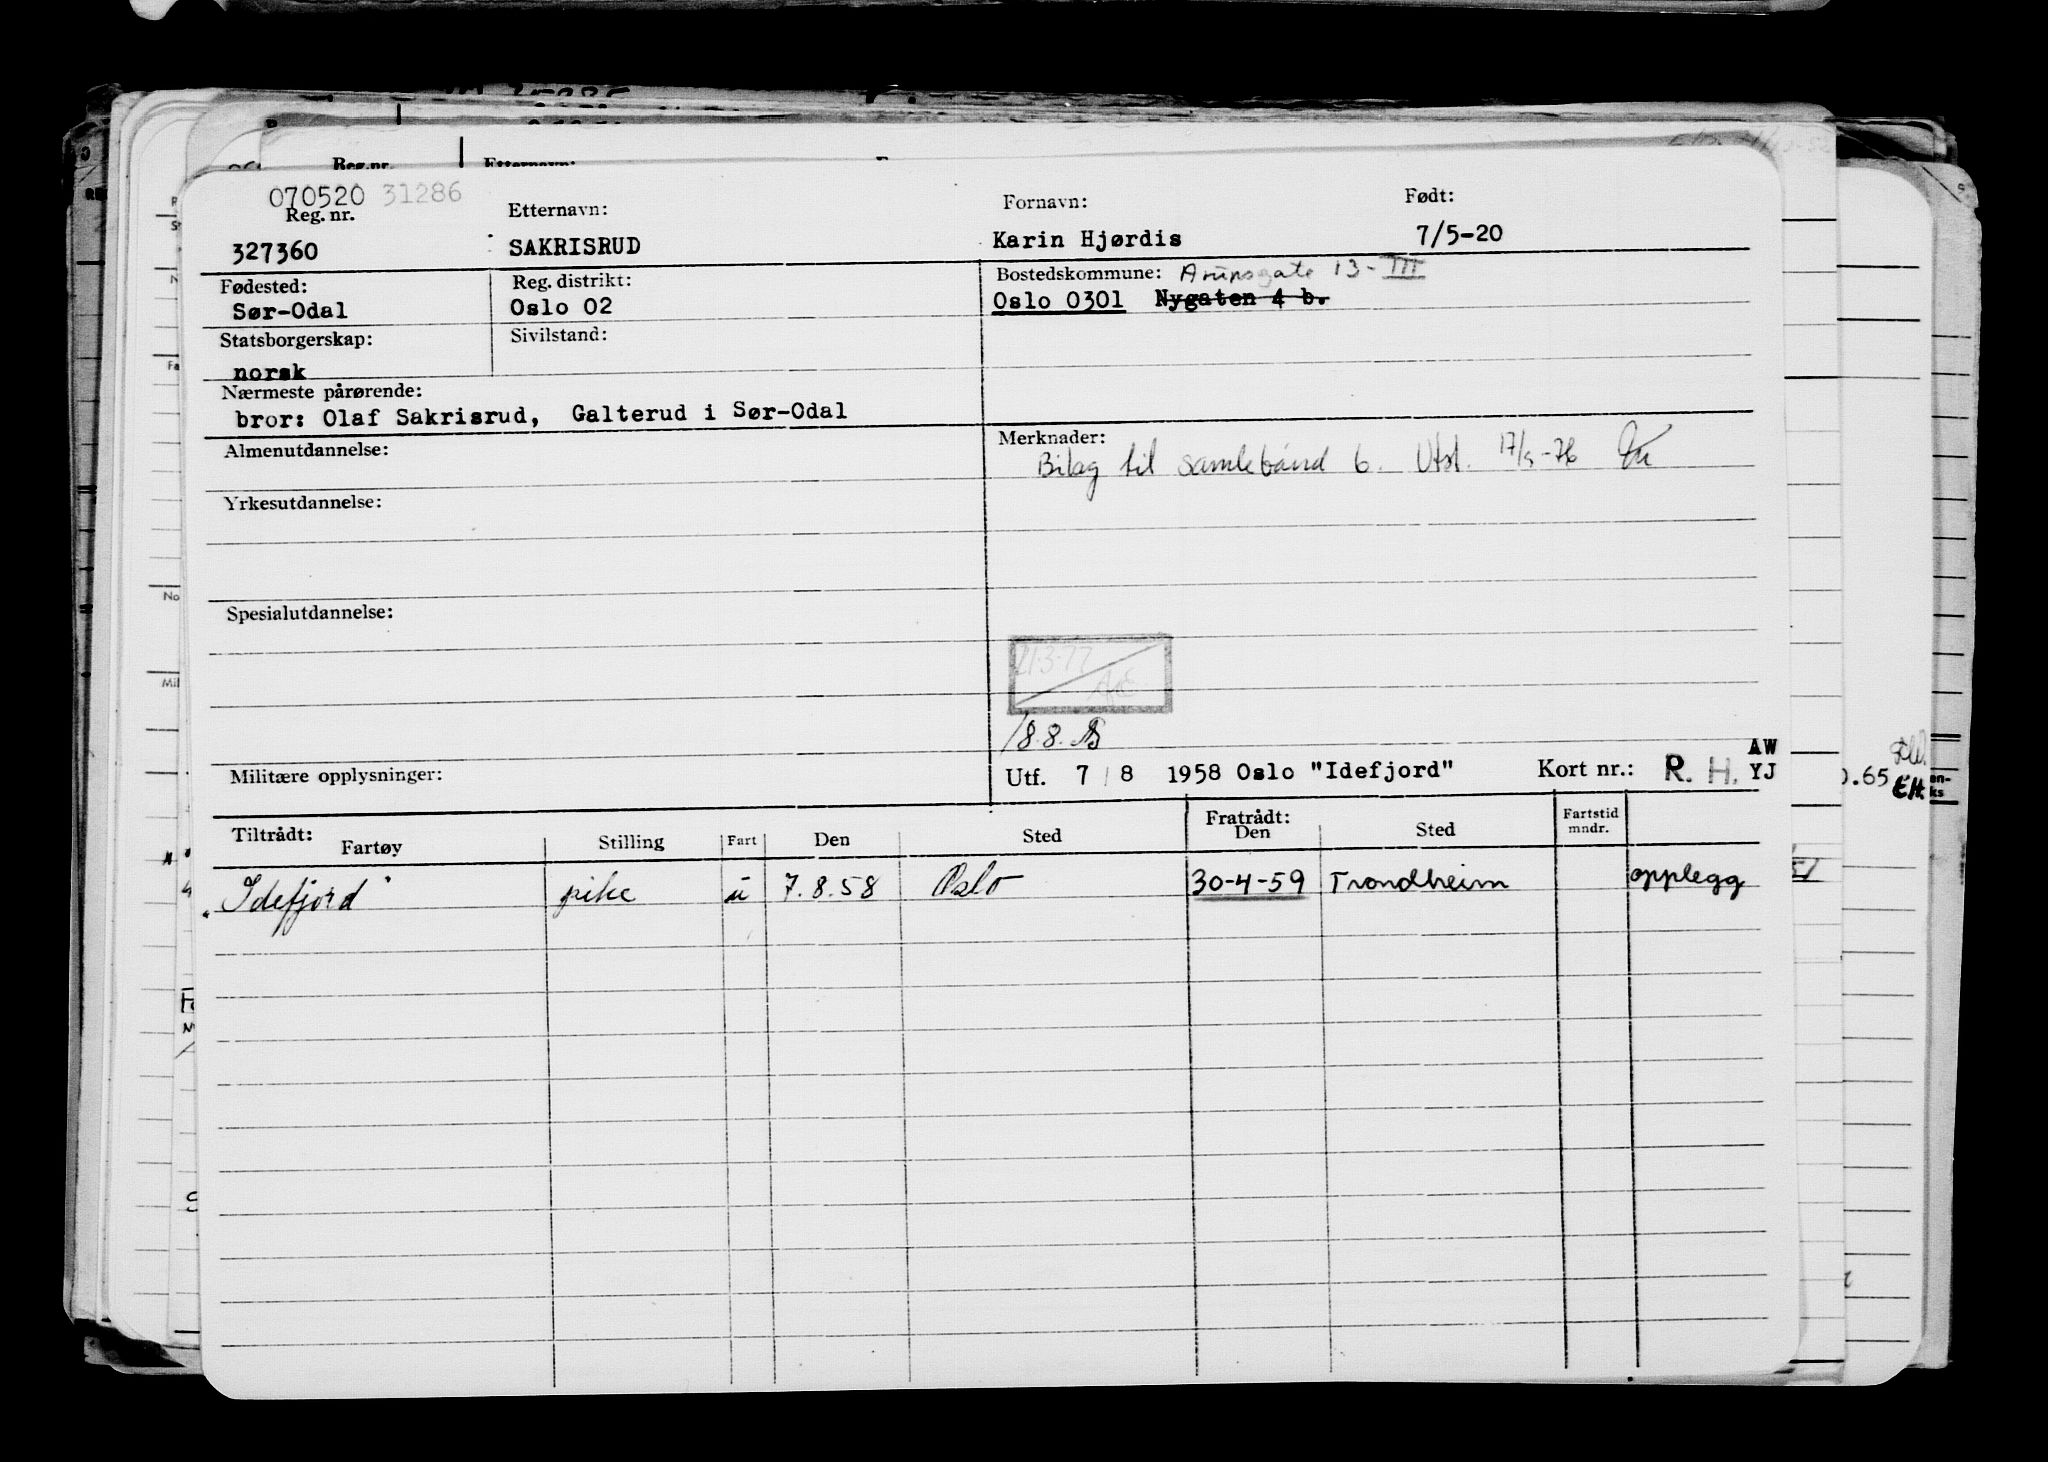 070520 31286
Reg. nr. Etternavn: Fornavn: Født:
327360 SAKRISRUD Karin Hjørdis 7/5-20
Fødested: Reg. distrikt: Bostedskommune: Arupsgate 13-III
Sør-Odal Oslo 02 Oslo 0301 Nygaten 4 b.
Statsborgerskap: Sivilstand:
norsk
Nærmeste pårørende:
bror: Olaf Sakrisrud, Galterud i Sør-Odal
Almenutdannelse: Merknader:
Bilag til samlebånd 6. Utst. 17/5-76
Yrkesutdannelse:
Spesialutdannelse:
21.3.77
18.8.
Militære opplysninger: Utf. 7/8 1958 Oslo "Idefjord" Kort nr.: R. H. AW
YJ
Tiltrådt: Fratrådt: Fartstid
Fartøy Stilling Fart Den Sted Den Sted mndr.
"Idefjord" pike u 7.8.58 Oslo 30-4-59 Trondheim opplegg
Reg.nr. Etternavn:
0.65
EH.